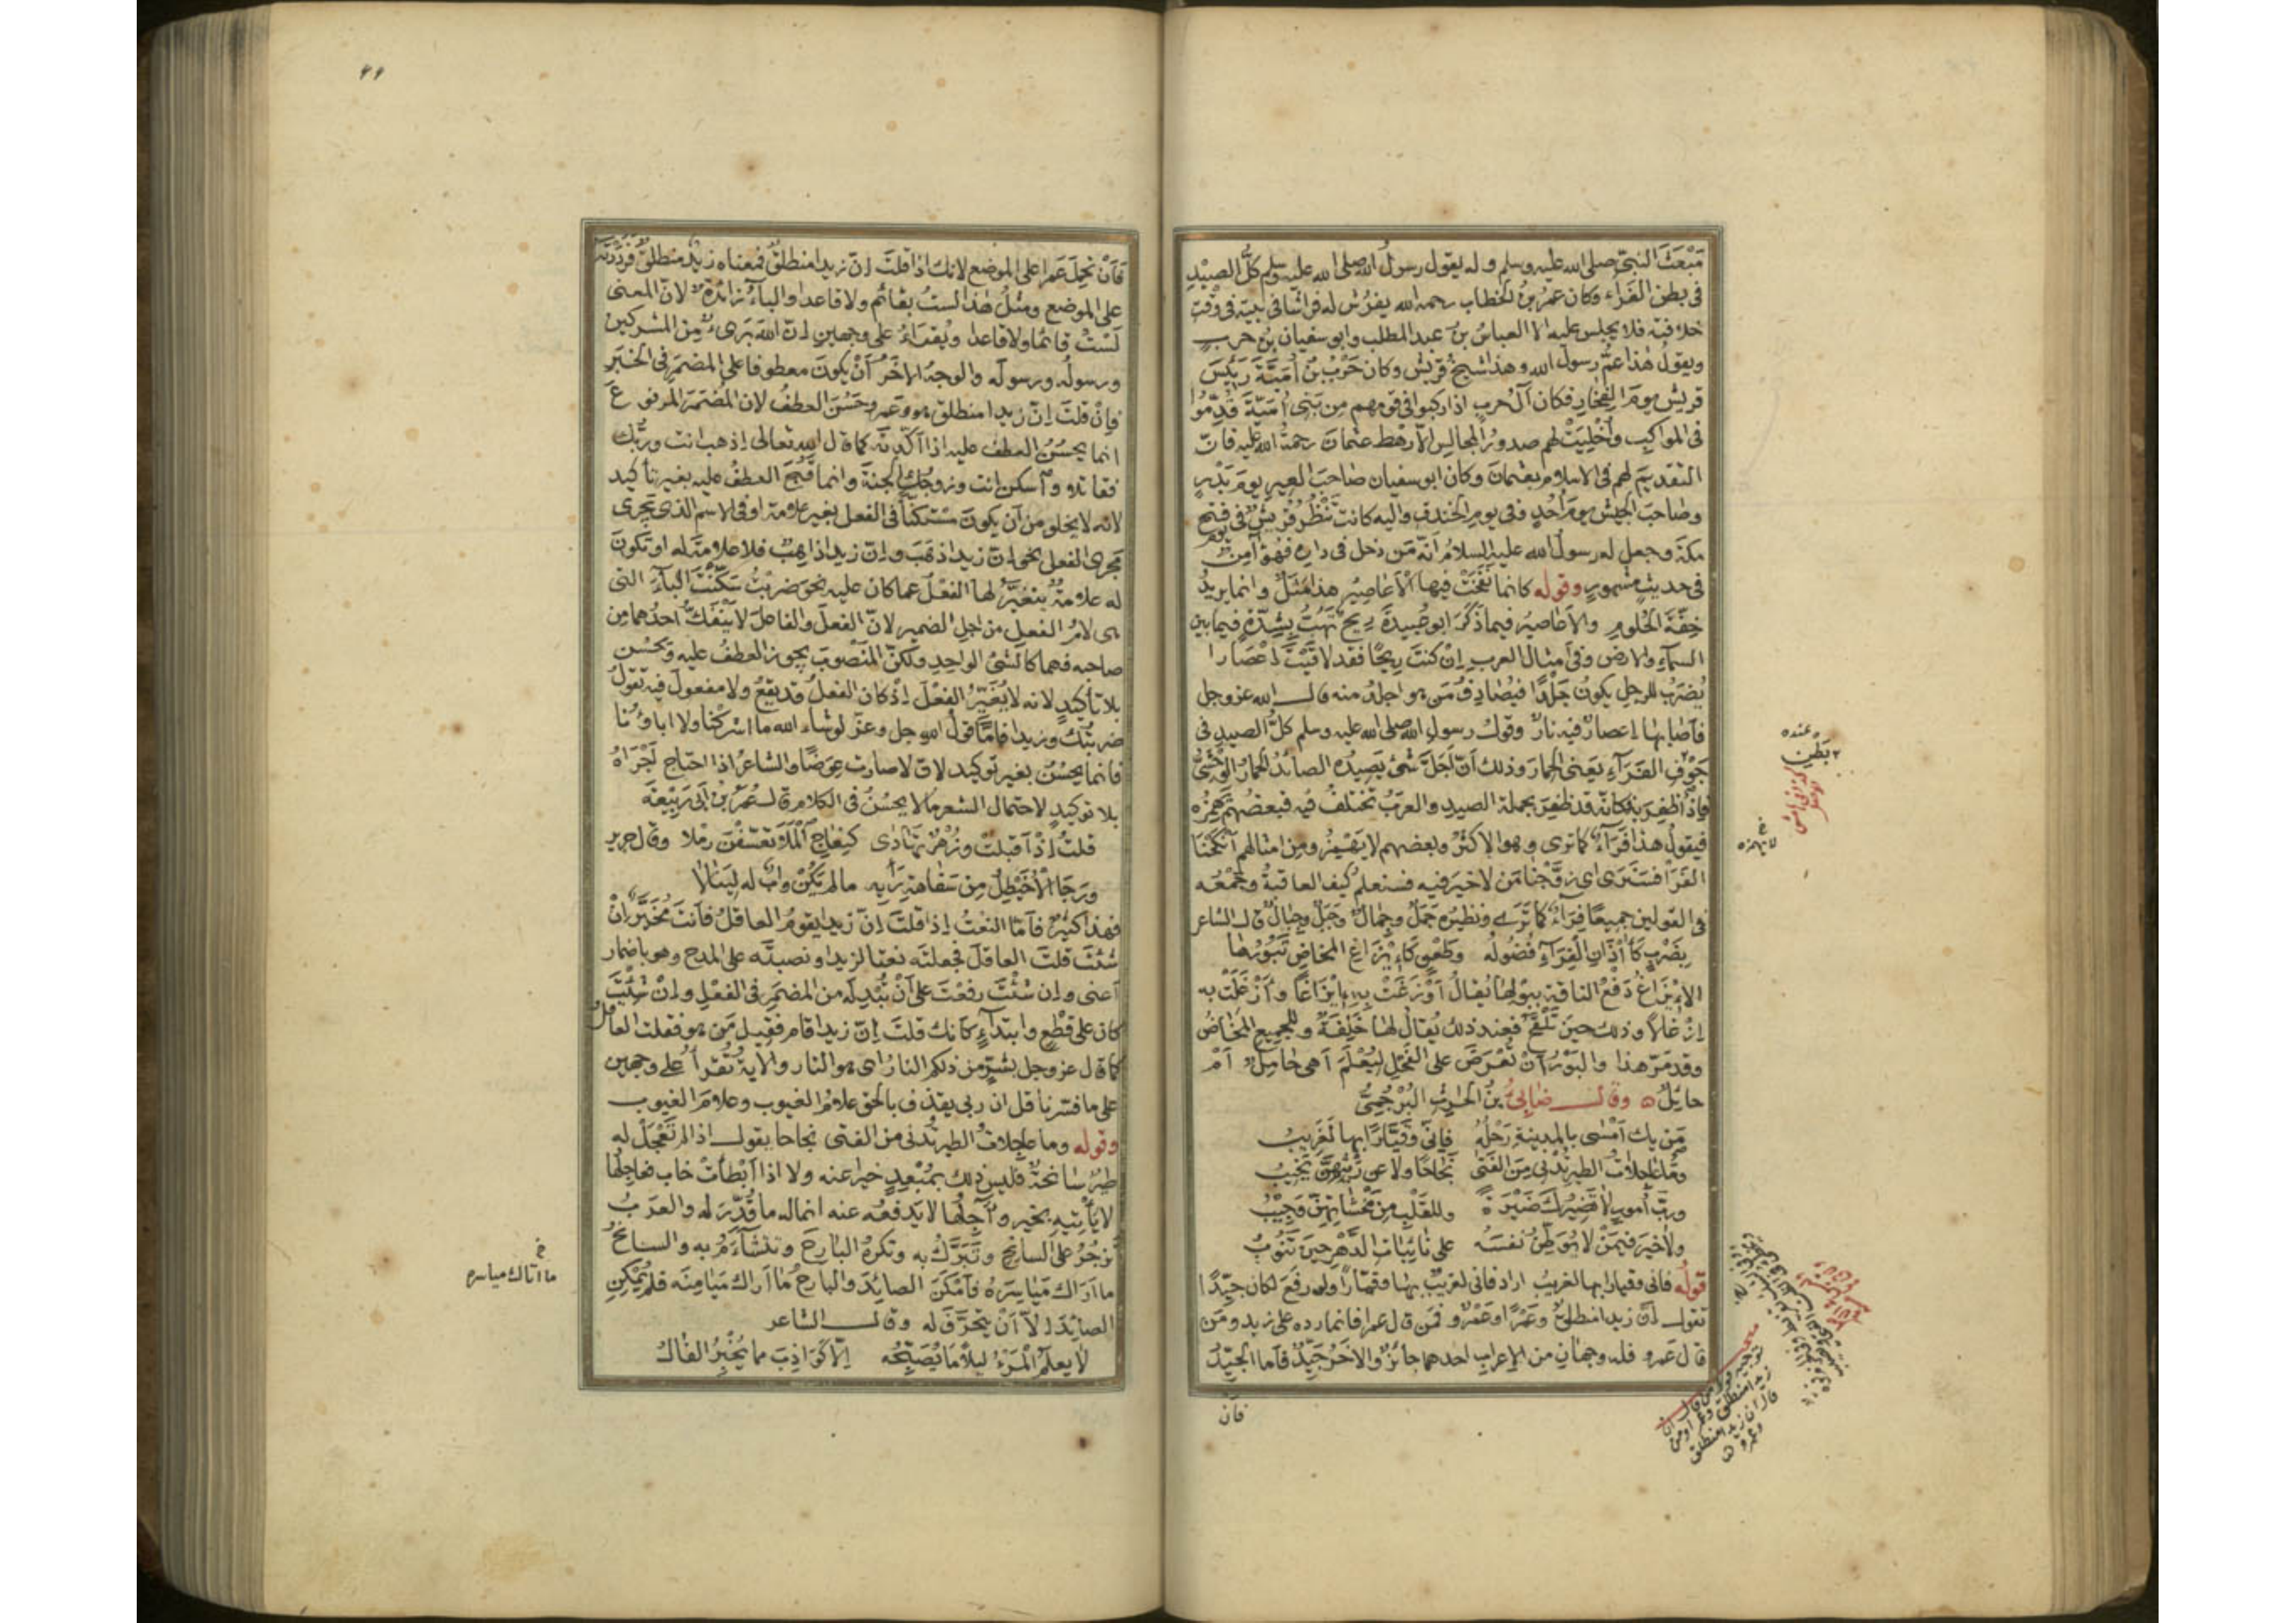 مَبْعَثَ النبيّ صلى الله عليه وسلم وله يقول رسول الله صلى الله عليه وسلم كلُّ الصيْدِ
فى بطن الفَرَاءِ وكان عمرُ بنُ الخطاب رحمه الله يفرُش له فراشا فى بيته فى وقْتِ
خلافته فلا يجلس عليه الا العباسُ بنُ عبد المطلب وابو سفيان بنُ حربٍ
ويقول هٰذا عمُّ رسول الله وهذا شيخ قريش وكان حَرْبُ بنُ أُمَيَّةَ رَئِيسَ
قريش يومَ الفِجَارِ فكان آلُ حربٍ اذا ركبوا فى قومهم من بَنِى أُمَيّةَ قُدِّمُوا
فى المواكِبِ وأُخْلِيَتْ لهم صدورُ المجالِس الّا رهْطَ عثمانَ رحمةُ الله عليه فانّ
التقديمَ لهم فى الاسلام بعثمانَ وكان ابو سفيان صاحبَ العِيرِ يومَ بَدْرٍ
وصاحبَ الجيْشِ يومَ أُحُدٍ وفى يوم الخندقِ واليه كانت تَنْظُرُ قُرَيشٌ فى يوم فتح
مكةَ وجعل له رسولُ الله عليه السلامُ أنّه مَن دخل فى داره فهُوَ آمِنٌ
فى حديثٍ مشهورٍ وقوله كانما نَفَخَتْ فيها الْأعَاصِيرُ هذا مَثَلٌ وانما يريدُ
خِفَّةَ الحُلُومِ والاعاصيرُ فيما ذكَرَ ابو عُبيدةَ رِيحٌ تَهُبُّ بِشِدَّةٍ فيما بين
السمآءِ والارض وفى أمثال العربِ إنْ كنتَ رِيحًا فقد لاقَيْتَ إعْصَارا
يُضرَبُ للرجل يكونُ جَلْدًا فيُصَادِفُ مَن هو اجلدُ منه قال الله عز وجل
فأصَابَها إعصارٌ فيه نارٌ وقولُ رسولِ الله صلى الله عليه وسلم كلُّ الصيد فى
جَوْفِ الفَرَآءِ يعنى الحمارَ وذلك أنّ أجَلَّ شئ يَصِيدُه الصائدُ الحمارُ الوَحْشىُّ
فإذا ظفِرَ به فكانه قد ظفِرَ بجملة الصيدِ والعربُ تختلفُ فيه فبعضُهم يهمِزُه
فيقولُ هذا فَرَأٌ كما ترى وهو الاكثرُ وبعضهم لا يَهْمِزُ ومن امثالهم أَنْكَحْنَا
الفَرَا فسَنَرَى اى زوّجْنا مَن لا خيرَ فيه فسنعلم كيف العاقبةُ وجمْعُه
فى القولين جميعًا فِرَاءٌ كما تَرَى ونظيرُه جَمَلٌ وجِمالٌ وجَبَلٌ وجِبالٌ قال الشاعر
بِضَرْبٍ كآذَانِ الْفِرَآءِ فُضُولُه وطَعْنٍ كَإيْزَاغِ المخاضِ تَبُورُها
الإيْزَاغُ دَفْعُ الناقةِ ببولِها يُقالُ أوْزَغَتْ به إيْزَاغًا وأزْغَلَتْ به
إزْغَالًا وذلك حينَ تَلْقَحُ فعند ذلك يُقالُ لها خَلِفَةٌ وللجميع المَخَاضُ
وقد مَرّ هذا والبَوْرُ أنْ تُعْرَضَ على الفَحْلِ ليُعْلَمَ أهى حَامِلٌ أمْ
حائلٌ ۞ وقال ضَابِىُ بنُ الحارث البُرْجُمِىُّ
مَن يك أمْسَى بالمدينة رَحْلُه فإنّى وقَيَّارًا بها لَغَرِيبُ
وما عاجِلاتُ الطير تُدْنى مِنَ الفَتَى نَجَاحًا ولا عن رَيْثِهنَّ يَخِيبُ
وربَّ أُمورٍ لا تَضِيرُكَ ضَيْرَةً وللقَلْبِ مِن مَخْشَاتِهِنّ وَجِيْبُ
ولا خَيرَ فيمَنْ لا يُوَطِّنُ نفسَه على نائباتِ الدَّهْرِ حينَ تَنُوبُ
قولُه فانى وقيارا بها لغريبُ اراد فانى لغريبٌ بها وقيّارا ولو رفَعَ لكان جيّدًا
تقول إنّ زيدا منطلقٌ وعَمْرًا وعَمْرٌو فمن قال عمرا فانما رده على زيدٍ ومَن
قال عمرو فله وجهانِ من الإعرابِ احدهما جائزٌ والآخرُ جيّدٌ فأما الجيّدُ
فان
عنده
بَطْن
لا يهمزه
توجيه قول من قال ان
زيدا منطلق وعمرا ومن
قال ان زيدا منطلق
وعمرو
فأن تحمِلَ عَمرا على الموضع لانك اذا قلتَ إنّ زيدا منطلقٌ فمعناه زيدٌ منطلقٌ فرددْتَه
على الموضع ومثلُ هٰذا لستُ بقائم ولا قاعدا والباءُ زائدةٌ لانّ المعنى
لستُ قائمًا ولا قاعدا ويُقرَأُ على وجهين إنّ الله بَرِىءٌ مِنَ المشركين
ورسولُه ورسولَه والوجهُ الآخرُ أنْ يكونَ معطوفا على المضمَر فى الخبَر
فإنْ قلتَ إنّ زيدا منطلق هو وعمرو حَسُنَ العطفُ لان المُضمَرَ المرفوعَ
انما يحسُنُ العطف عليه اذا أكّدتَه كما قال الله تعالى إذهب انت وربّك
فقاتلا وآسكن انت وزوجُك الجنة وانما قَبُحَ العطفُ عليه بغير تأكيد
لانه لا يخلو من أن يكونَ مستكنًّا فى الفعل بغير علامة او فى الاسم الذى يَجرى
مَجرَى الفعل نحو إنّ زيدا ذهَبَ وإنّ زيدا ذاهبٌ فلا علامةَ له او تكونَ
له علامةٌ يتغيَّرُ لها الفعلُ عما كان عليه نحو ضربْتُ سَكَّنْتَ الباءَ التى
هى لامُ الفعل من اجل الضمير لانّ الفعلَ والفاعلَ لا يَنْفَكُّ احدُهما من
صاحبه فهما كالشئ الواحدِ ولكنّ المنصوبَ يجوز العطفُ عليه ويَحْسُن
بلا تأكيدٍ لانه لا يُغَيِّرُ الفعلَ إذ كان الفعلُ قد يقعُ ولا مفعولَ فيه تقولُ
ضربتُك وزيدا فامّا قولُ الله جل وعز لو شاء الله ما اشركنا ولا اباؤنا
فانما يحسُنُ بغير توكيد لان لا صارت عِوَضًا والشاعرُ اذا احتاج أجْرَاهُ
بلا توكيدٍ لاحتمال الشعر ما لا يحسُنُ فى الكلام قال عُمَرُ بنُ أبى رَبِيْعةَ
قلتُ إذْ أقبلتْ وزُهْرٌ تَهَادَى كنِعاجِ الْمَلَا تعسّفْنَ رملا وقال جرير
ورَجَا الأُخَيْطِلُ مِن سَفَاهةِ رَأيِه ما لم يَكُنْ وأبٌ له لِيَنَالَا
فهذا كثيرٌ فأمّا النعتُ إذا قلتَ إنّ زيدا يقومُ العاقلُ فأنتَ مُخَيَّرٌ إنْ
شئتَ قلتَ العاقلَ فجعلتَه نعتا لزيد او نصبتَه على المدح وهو باضمار
أعنى وإن شئتَ رفعتَ على أنْ تُبْدِلَه من المضمَر فى الفعْل وإنْ شئتَ
كان على قطْعٍ وابتداءٍ كانك قلتَ إنّ زيدا قام فقيل مَن هو فقلت العاقلُ
كما قال عز وجل بشرٍّ من ذلكم النارُ اى هو النار والايةُ تُقْرأُ على وجهين
على ما فسّرنا قل ان ربى يقذف بالحق علامُ الغيوب وعلامَ الغيوب
وقوله وما عاجلاتُ الطير تُدنى من الفتى نجاحا يقول اذا لم تَعْجَلْ له
طيرٌ سانحةٌ فليس ذلك بمُبْعِدٍ خيرا عنه ولا اذا أبْطَأتْ خاب فعاجلُها
لا يَأتيه بخير وآجِلُها لا يَدفعُه عنه انما له ما قُدِّرَ له والعربُ
تزجُرُ على السانحِ وتَتبرَّكُ به وتكرهُ البارحَ وتتشآءَمُ به والسانحُ
ما أرَاك مَيَاسِرَهُ فأمكَنَ الصائدَ والبارحُ ما أراك مَيَامِنَه فلم يُمْكِنِ
الصائدَ إلّا أنْ ينحرَّفَ له وقال الشاعر
لا يعلمُ المَرْءُ ليلًا ما يُصَبِّحُه إلّا كَوَاذِبَ مما يُخْبِرُ الفالُ
ما اتاك مياسره